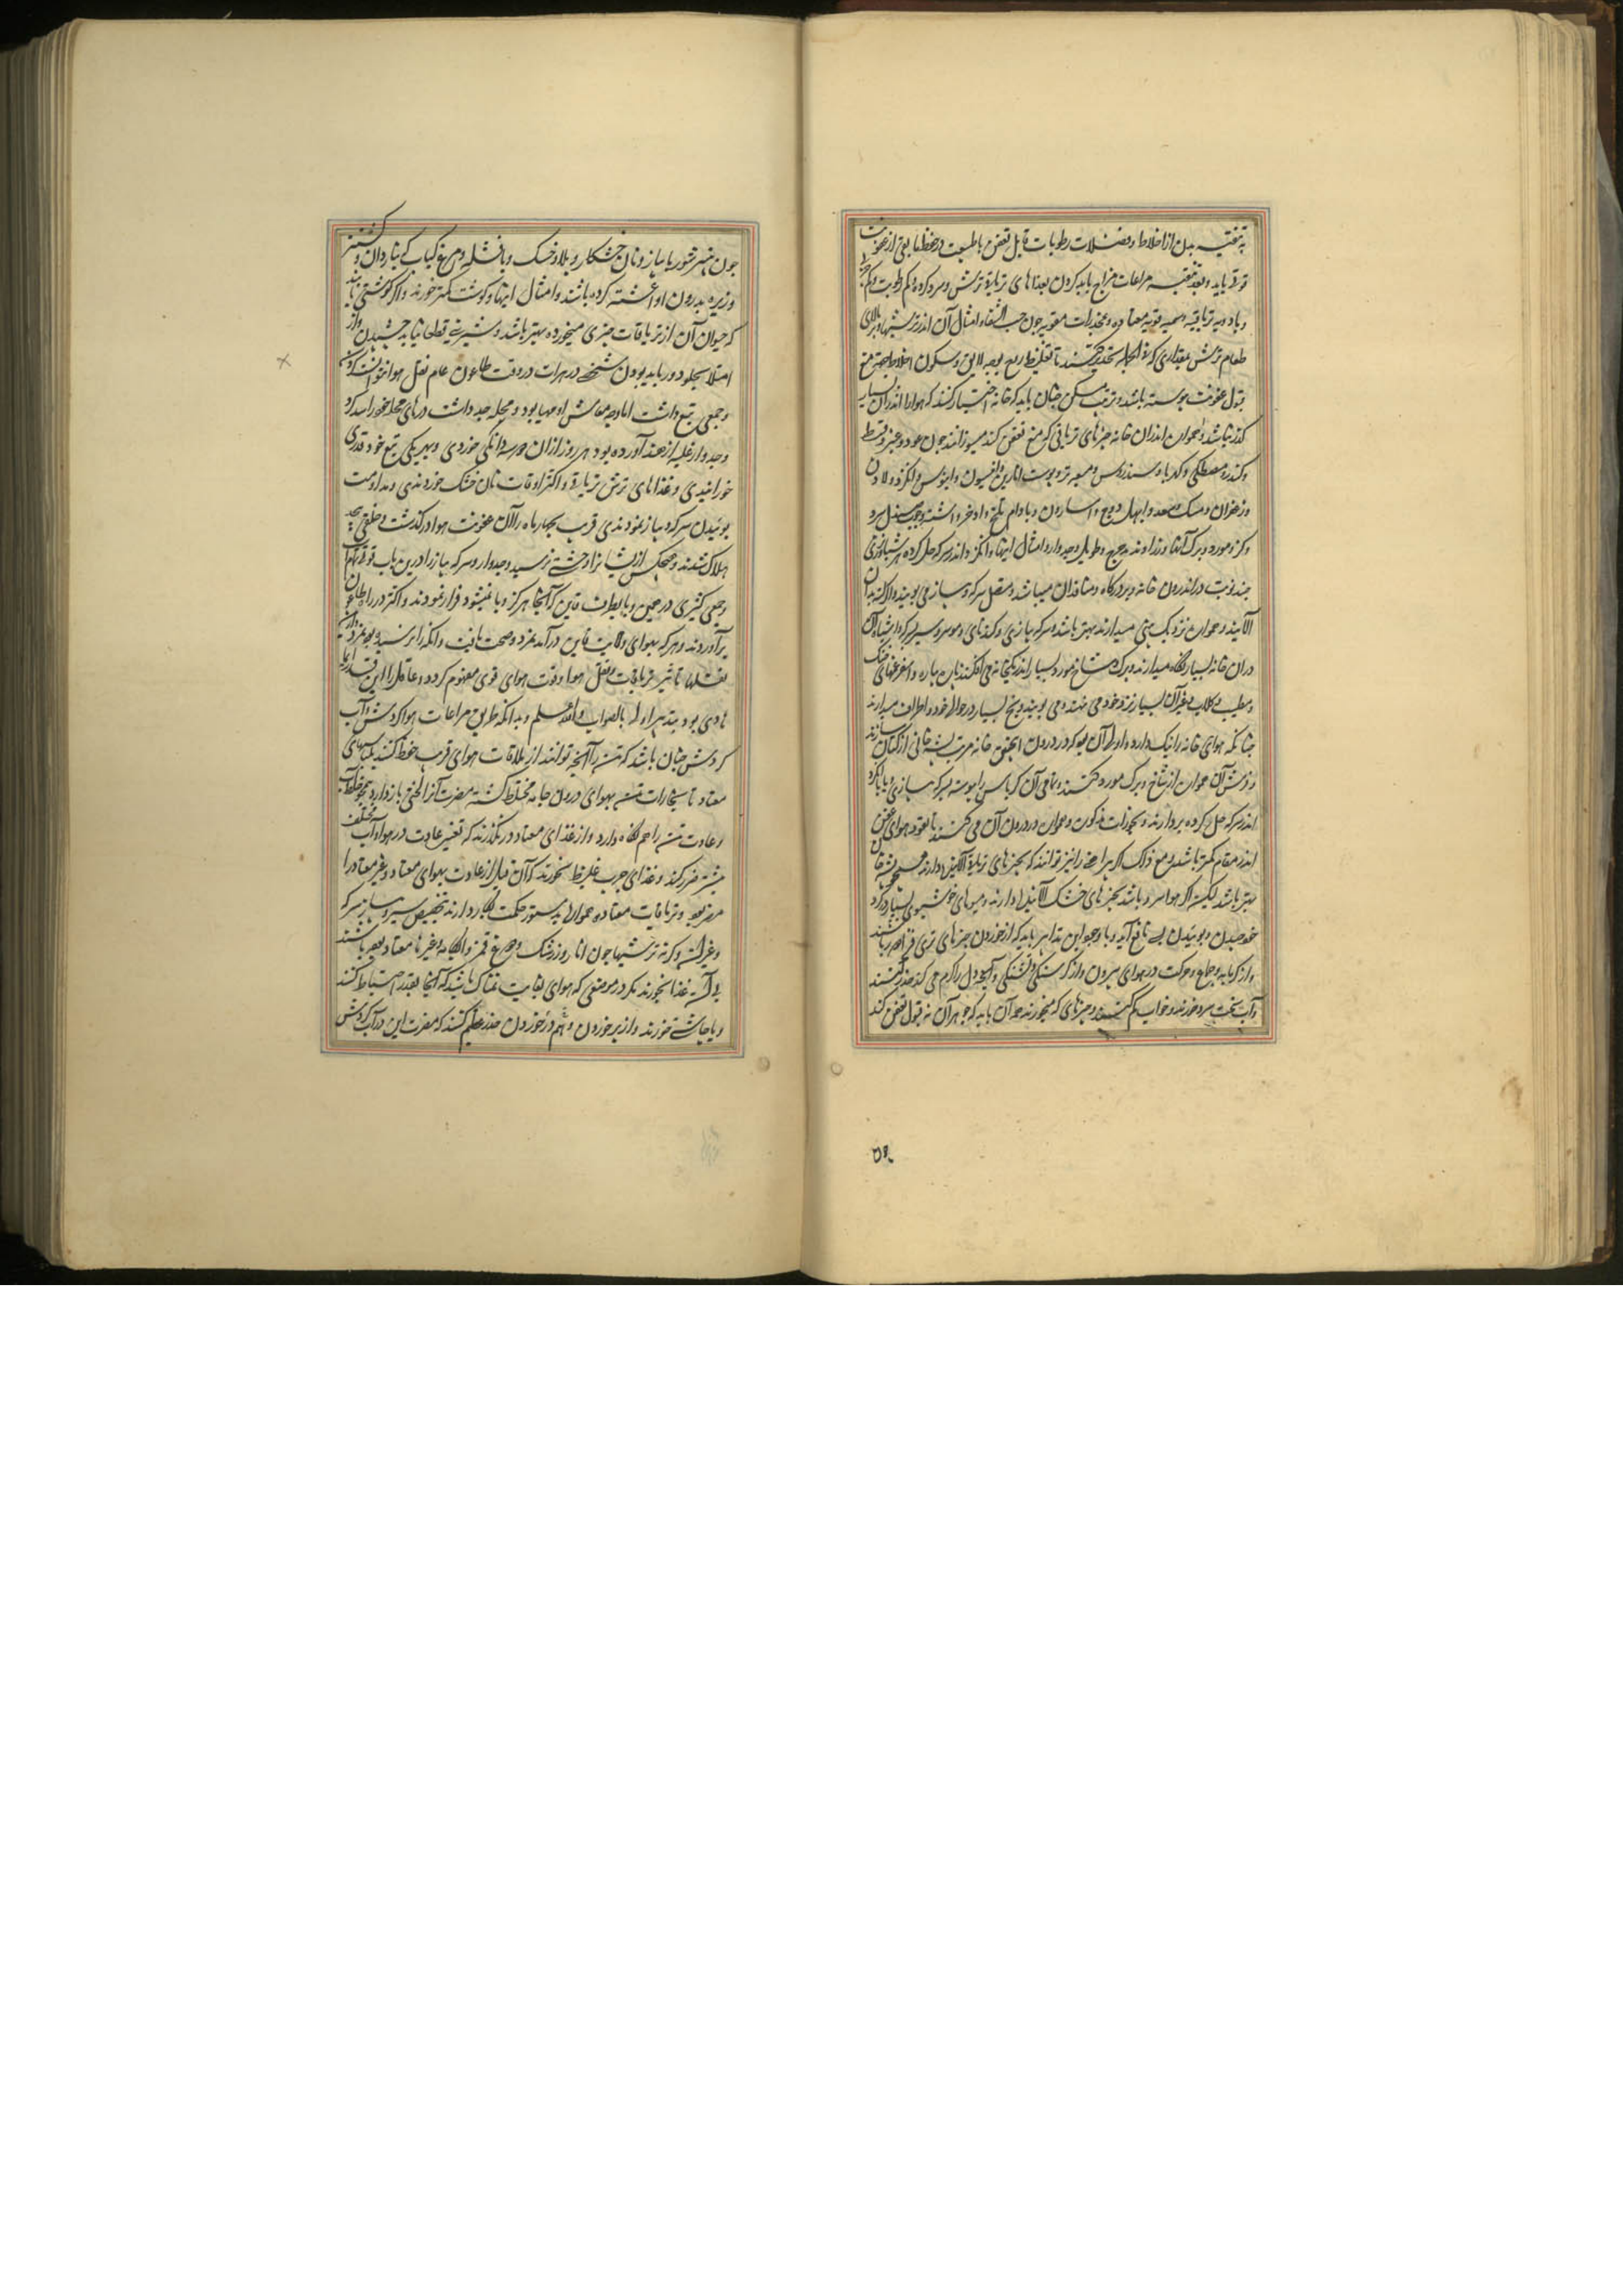 به تنقیه بدن از اخلاط و فضلات رطوبات قابل تعفن با طبیعت در حفظ باقی از عفونت
قوی باید و بعد تنقیه مراعات مزاج باید کردن بغذاهای تریاقی ترش و سرد کرده کم رطوبت و کم
و بادویه تریاقیه و سمیه قویه معتاده و مخدرات مقویه چون حب الشفاء و امثال آن اندر ترشیها و بر بالای
طعام ترش بمقداری که فی الجمله تخدیر کنند تا تغلیظ روح بوجه لایق و سکون اخلاط جهت منع
قبول عفونت پیوسته باشد و ترتیب مسکن چنان باید که خانه اختیار کنند که هوا را اندران بسیار
گذر نباشد و هموار اندران خانه چیزهای تریاقی که منع تعفن کند میسوزانند چون عود و عنبر و قسط
و کندر و مصطکی و کهربا و سندروس و میعه تر و پوست انارین و افیون و ابنوس و انگزد و لادن
و زعفران و مشک و سعد و ابهل و وج و اسارون و بادام تلخ و اذخر و اشنه و چوب صندل و سرو
و گز و مورد و برک آنها و زراوند مدحرج و طویل و جدوار و امثال اینها و انگزد اندر سرکه حل کرده هر شبانروزی
چند نوبت در اندرون خانه و بر درگاه و منافذ آن میپاشند و متصل سرکه و پیاز می بویند و اگر تنه بدان
آلایند و هموار نزدیک بینی میدارند بهتر باشد و سرکه پیازی و کندنای و موسیر و سیر بسرکه و اشباه آن
دران خانه بسیار نگاه میدارند و برک و شاخ مورد بسیار اندر یکجانه می افکنند بان پاره و اسفرغمهای خنک
و مطیب بگلاب و غیر آن بسیار نزد خود می نهند و می بویند و یخ بسیار در حوالی خود و اطراف میدارند
چنانکه هوای خانه را نیک دارد و اولی آن بود که در درون اینچنین خانه مرتب پشه خانی از کتان سازند
و فرش آن هموار از شاخ و برک مورد کنند و باقی آن کرباس را پیوسته بسرکه پیازی و یا انگزد
اندر سرکه حل کرده بر دارند و بخورات مذکور هموار در درون آن می کنند تا نفوذ هوای عفن
اندر مقام کمتر باشد و مع ذلک اگر پیراهن را نیز توانند که بچیزهای تریاقی آلایش دارند
بهتر باشد لیکن اگر هوا سرد باشد بچیزهای خشک آلاینداوارند و میوهای خوشبوی بسیار در گرد
خود چیدن و بوئیدن بی نافع آید و با وجود این تدابیر باید که از خوردن چیزهای تری فزا
و از گرمابه و جماع و حرکت در هوای بیرون و از گرسنگی و تشنگی و آنچه دل را گرم می کند حذر کنند
و آب سخت سرد خورند و خواب کم کنند و چیزهای که میخورند جو آن باید که جوهر آن نه قبول تعفن کند
۵۹
چون پنیر شور با پیاز و نان خشکار و پلاو خشک و باقشله و مرغ کباب که ناردان و کشنیز
و زیره بدرون او آغشته کرده باشند و امثال اینها و گوشت کمتر خورند و اگر گوشتی باشد
که حیوان آن از تریاقات چیزی میخورده بهتر باشد و شیرینی قطعا نباید چشیدن و از
امتلا بجد دور باید بودن شخصی در هرات در وقت طاعون عام نقل هوا نتوانست کردن
و جمعی تبع داشت اما وجه معاش او مهیا بود و محله جدا داشت درهای محله خود را سد کرد
و جدوار غلیه از هند آورده بود هر روز ازان هر سه دانکی خوردی و بهر یکی تبع خود قدری
خورانیدی و غذاهای ترش تریاقی و اکثر اوقات نان خشک خوردندی و مداومت
بوئیدن سرکه و پیاز نمودندی قریب بچهار ماه را آن عفونت هوا در گذشت و خلقی بیحد
هلاک شدند و هیچکس ازیشانرا وحشتی نرسید و جدوار و سرکه پیاز را درین باب قوتهاست
و جمعی کثیری در حین وبا بطرف قاین که آنجا هرگز وبا نمیشود فرار نمودند و اکثر در راه طاعون
برآوردند و هر که بهوای ولایت قاین در آمد نمرد و صحت یافت و آنکه را نرسید بود بمرد ازین
نقلها تاثیر تریاقات و نقل هوا و قوت هوای قوی مفهوم گردد و عاقل را این قدر ایما
هادی بود بتدبیر اوله بالصواب والله اعلم و بدانکه طریق مراعات هوا گردش و آب
گردش چنان باشد که تن را آنچه توانند از ملاقات هوای قریب حفظ کنند بلباسهای
معتاد تا بخارات تن بهوای درون جامه مختلط گشته مضرت آنرا لختی باز دارد
و عادت تن را هم نگاه دارد و از غذای معتاد در نگذرند که تغیر عادت در هوا و آب مختلف
بیشتر ضرر کند و غذای چرب غلیظ نخورند که آن قبل از عادت بهوای معتاد و غیر معتاد را
مضر بود و تریاقات معتاده هموار بدستور حکمت بکار دارند بتخصیص سیر و پیاز بسرکه
و غیر آن و گرنه ترشیها چون انار و زرشک و مرغ قمز و آبکامه و غیرها معتاد بوده باشند
بی آن غذا نخورند مگر در موضعی که هوای بغایت نمناک باشد که آنجا بقدر احتیاط کنند
و یا چاشنی خورند و از پر خوردن و برهم در خوردن حذر عظیم کنند که مضرت این در آب گردش